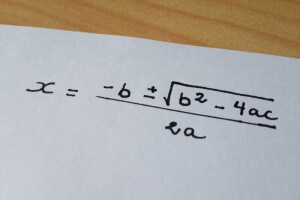 x = (-b ± √(b² - 4ac)) / 2a